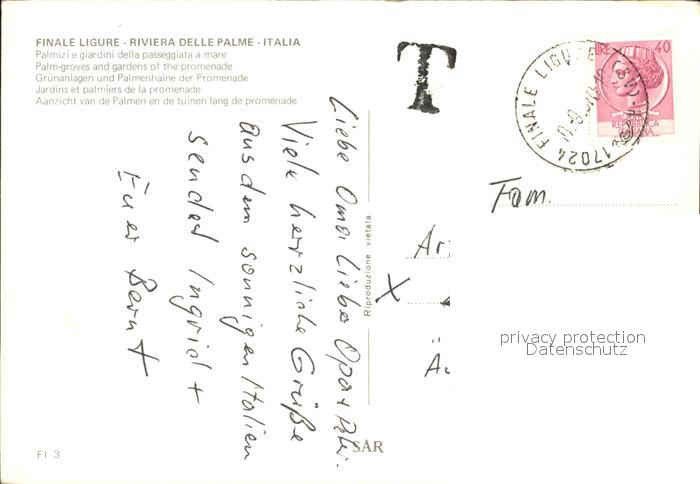 FINALE LIGURE - RIVIERA DELLE PALME - ITALIA
Palmizi e giardini della passeggiata a mare
Palm-groves and gardens of the promenade
Grünanlagen und Palmenhaine der Promenade
Jardins et palmiers de la promenade
Aanzicht van de Palmen en de tuinen lang de promenade
T
LIRE 40
REPUBBLICA
ITALIANA
17024 FINALE LIGURE
Liebe Oma, Liebe Opa +
Viele herzliche Grüße
aus dem sonnigen Italien
sendet Ingrid +
Euer Bernt
Riproduzione vietata
Fam.
X
privacy protection
Datenschutz
FI 3
SAR